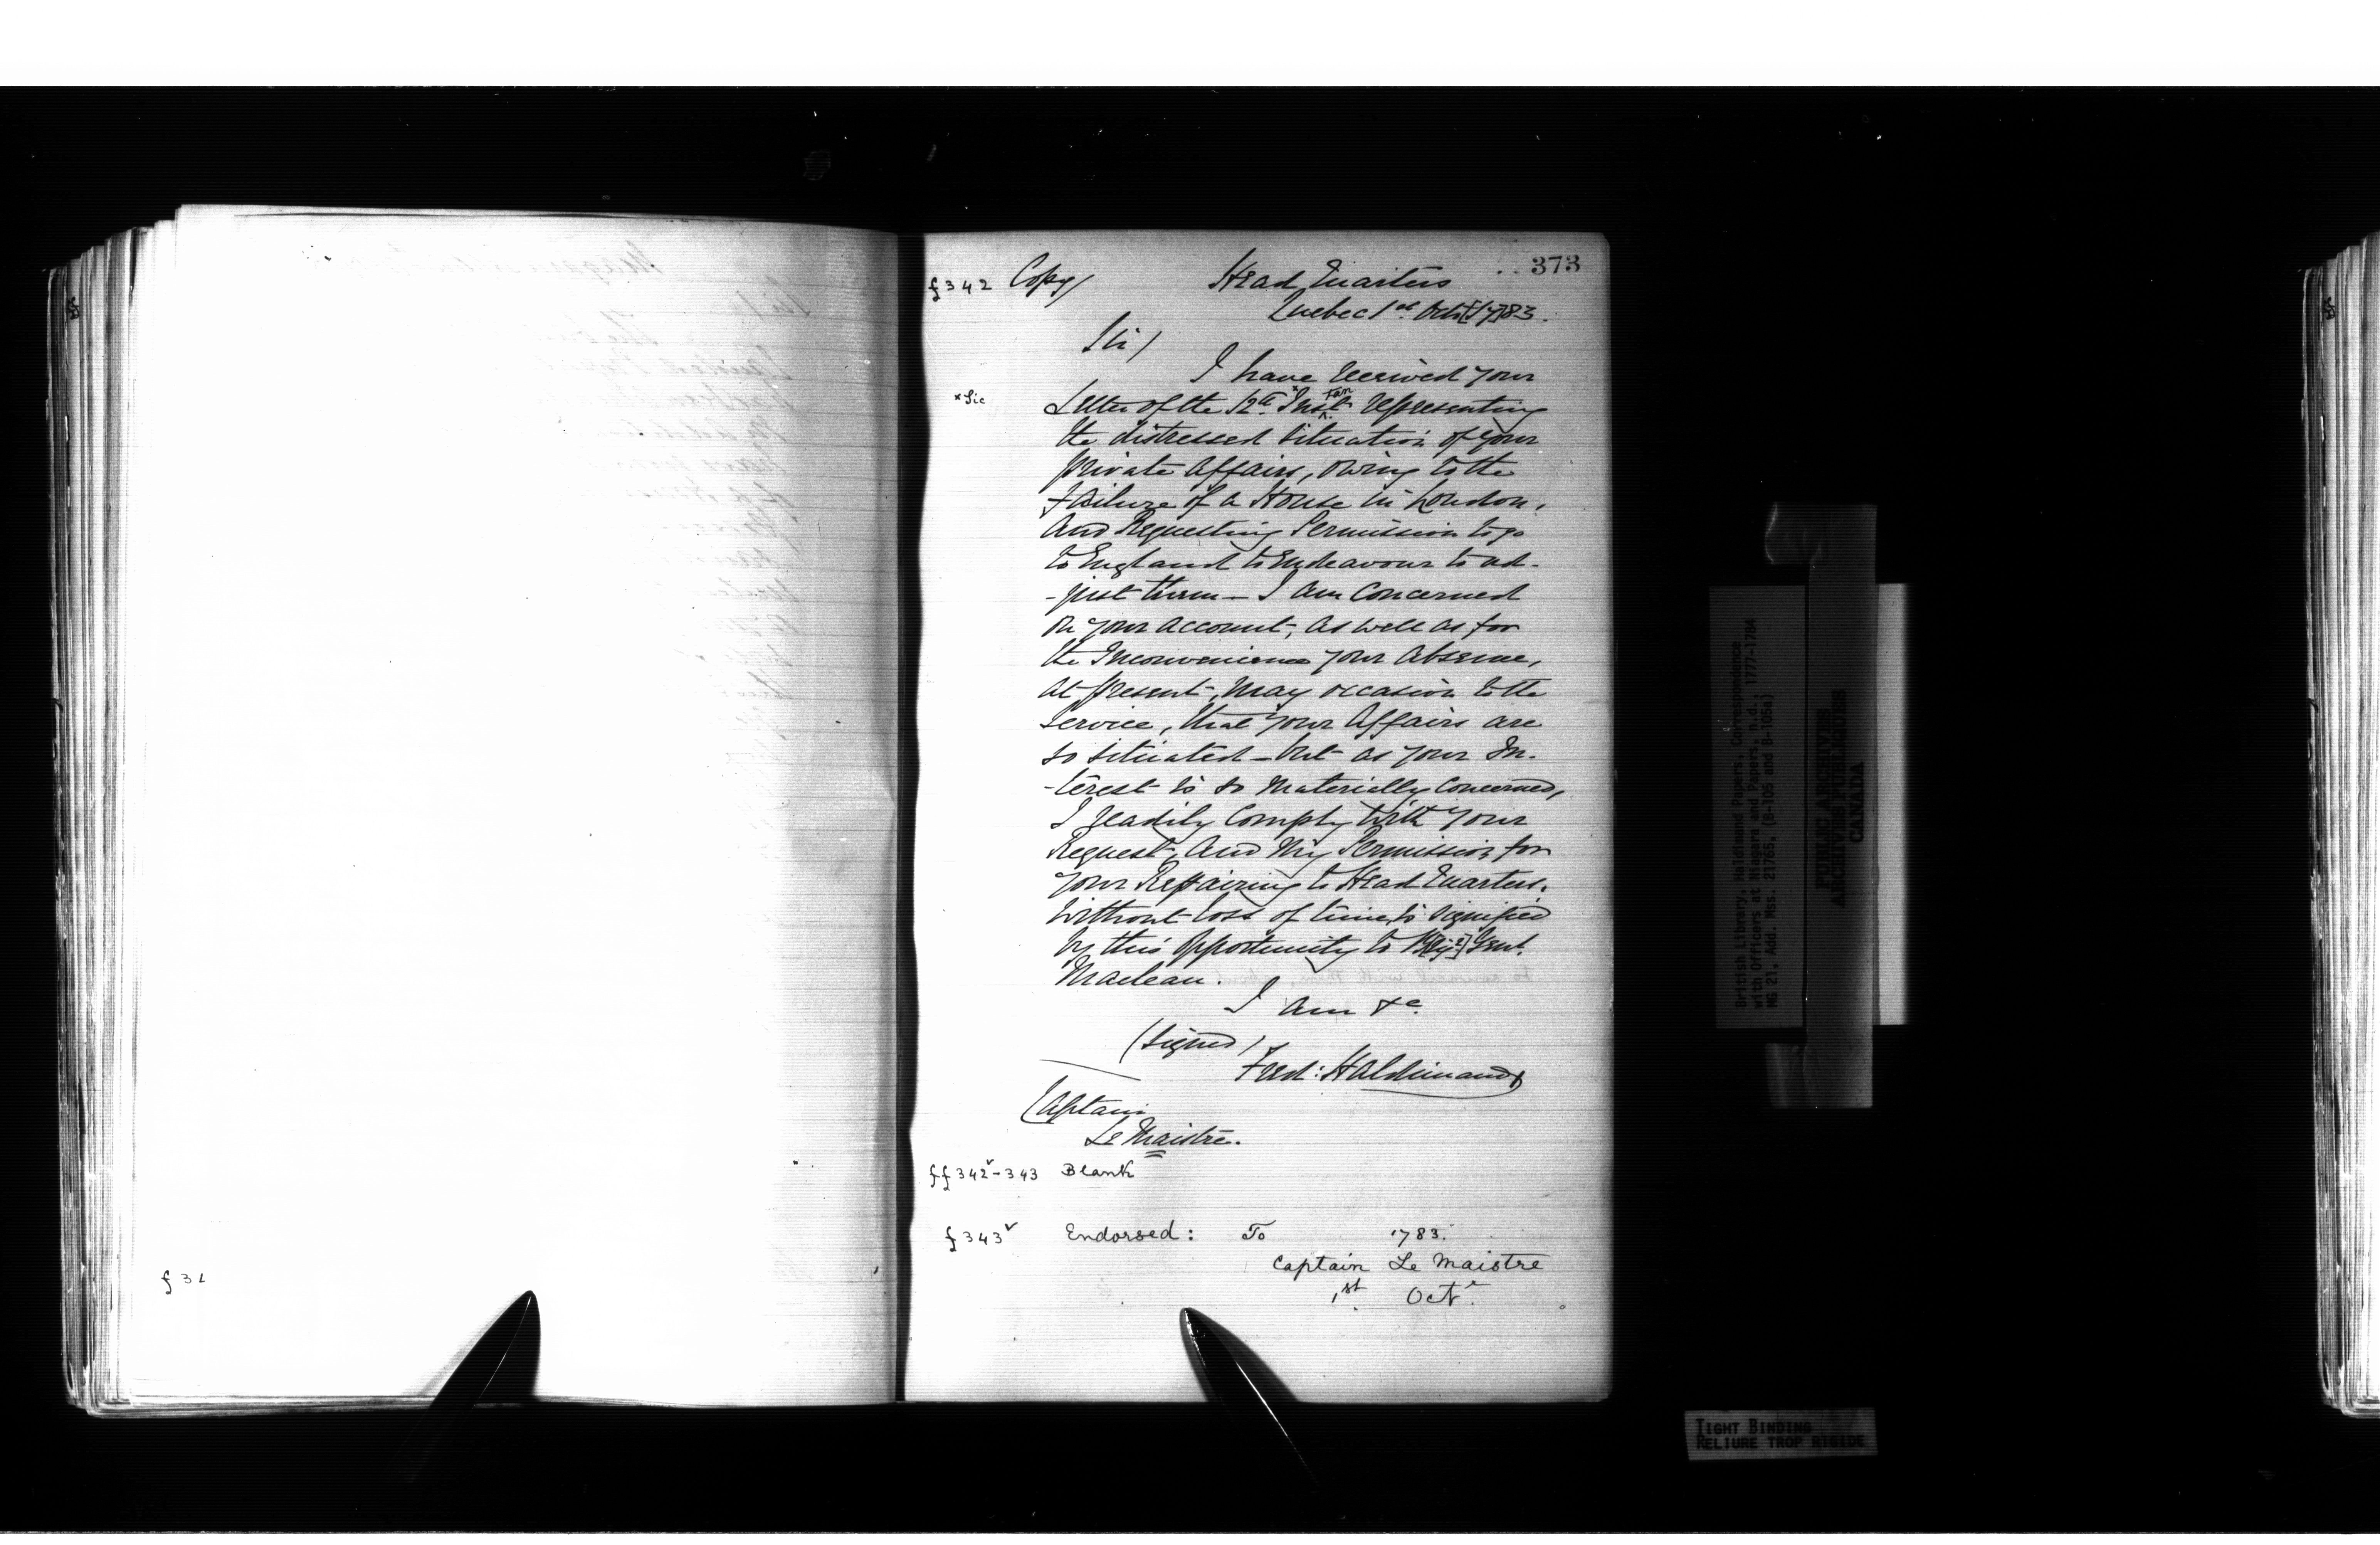 373
f 342 Copy/ Head Quarters
Quebec 1st Octr [17]83.
Sir/
I have Received your
*Sic Letter of the 12th *Instant representing
the distressed situation of your
private Affairs, owing to the
failure of a House in London,
and Requesting Permission to go
to England to Endeavour to ad-
-just them — I am Concerned
on your account, as well as for
the Inconvenience your Absence,
at present, may occasion to the
Service, that your Affairs are
so situated — but as your In-
-terest is so Materially Concerned,
I readily Comply with your
Request, and My Permission for
your Repairing to Head Quarters,
without loss of time, is signified
by this Opportunity to B[rigr] Genl.
Maclean.
I am &c.
(signed)
Fred: Haldimand
Captain
Le Maistre.
ff 342v-343 Blank
f 343v Endorsed: To 1783.
Captain Le Maistre
1st. Octr.
f 3
British Library, Haldimand Papers, Correspondence
with Officers at Niagara and Papers, n.d., 1777-1784
MG 21, Add. Mss. 21765, (B-105 and B-105a)
PUBLIC ARCHIVES
ARCHIVES PUBLIQUES
CANADA
TIGHT BINDING
RELIURE TROP RIGIDE